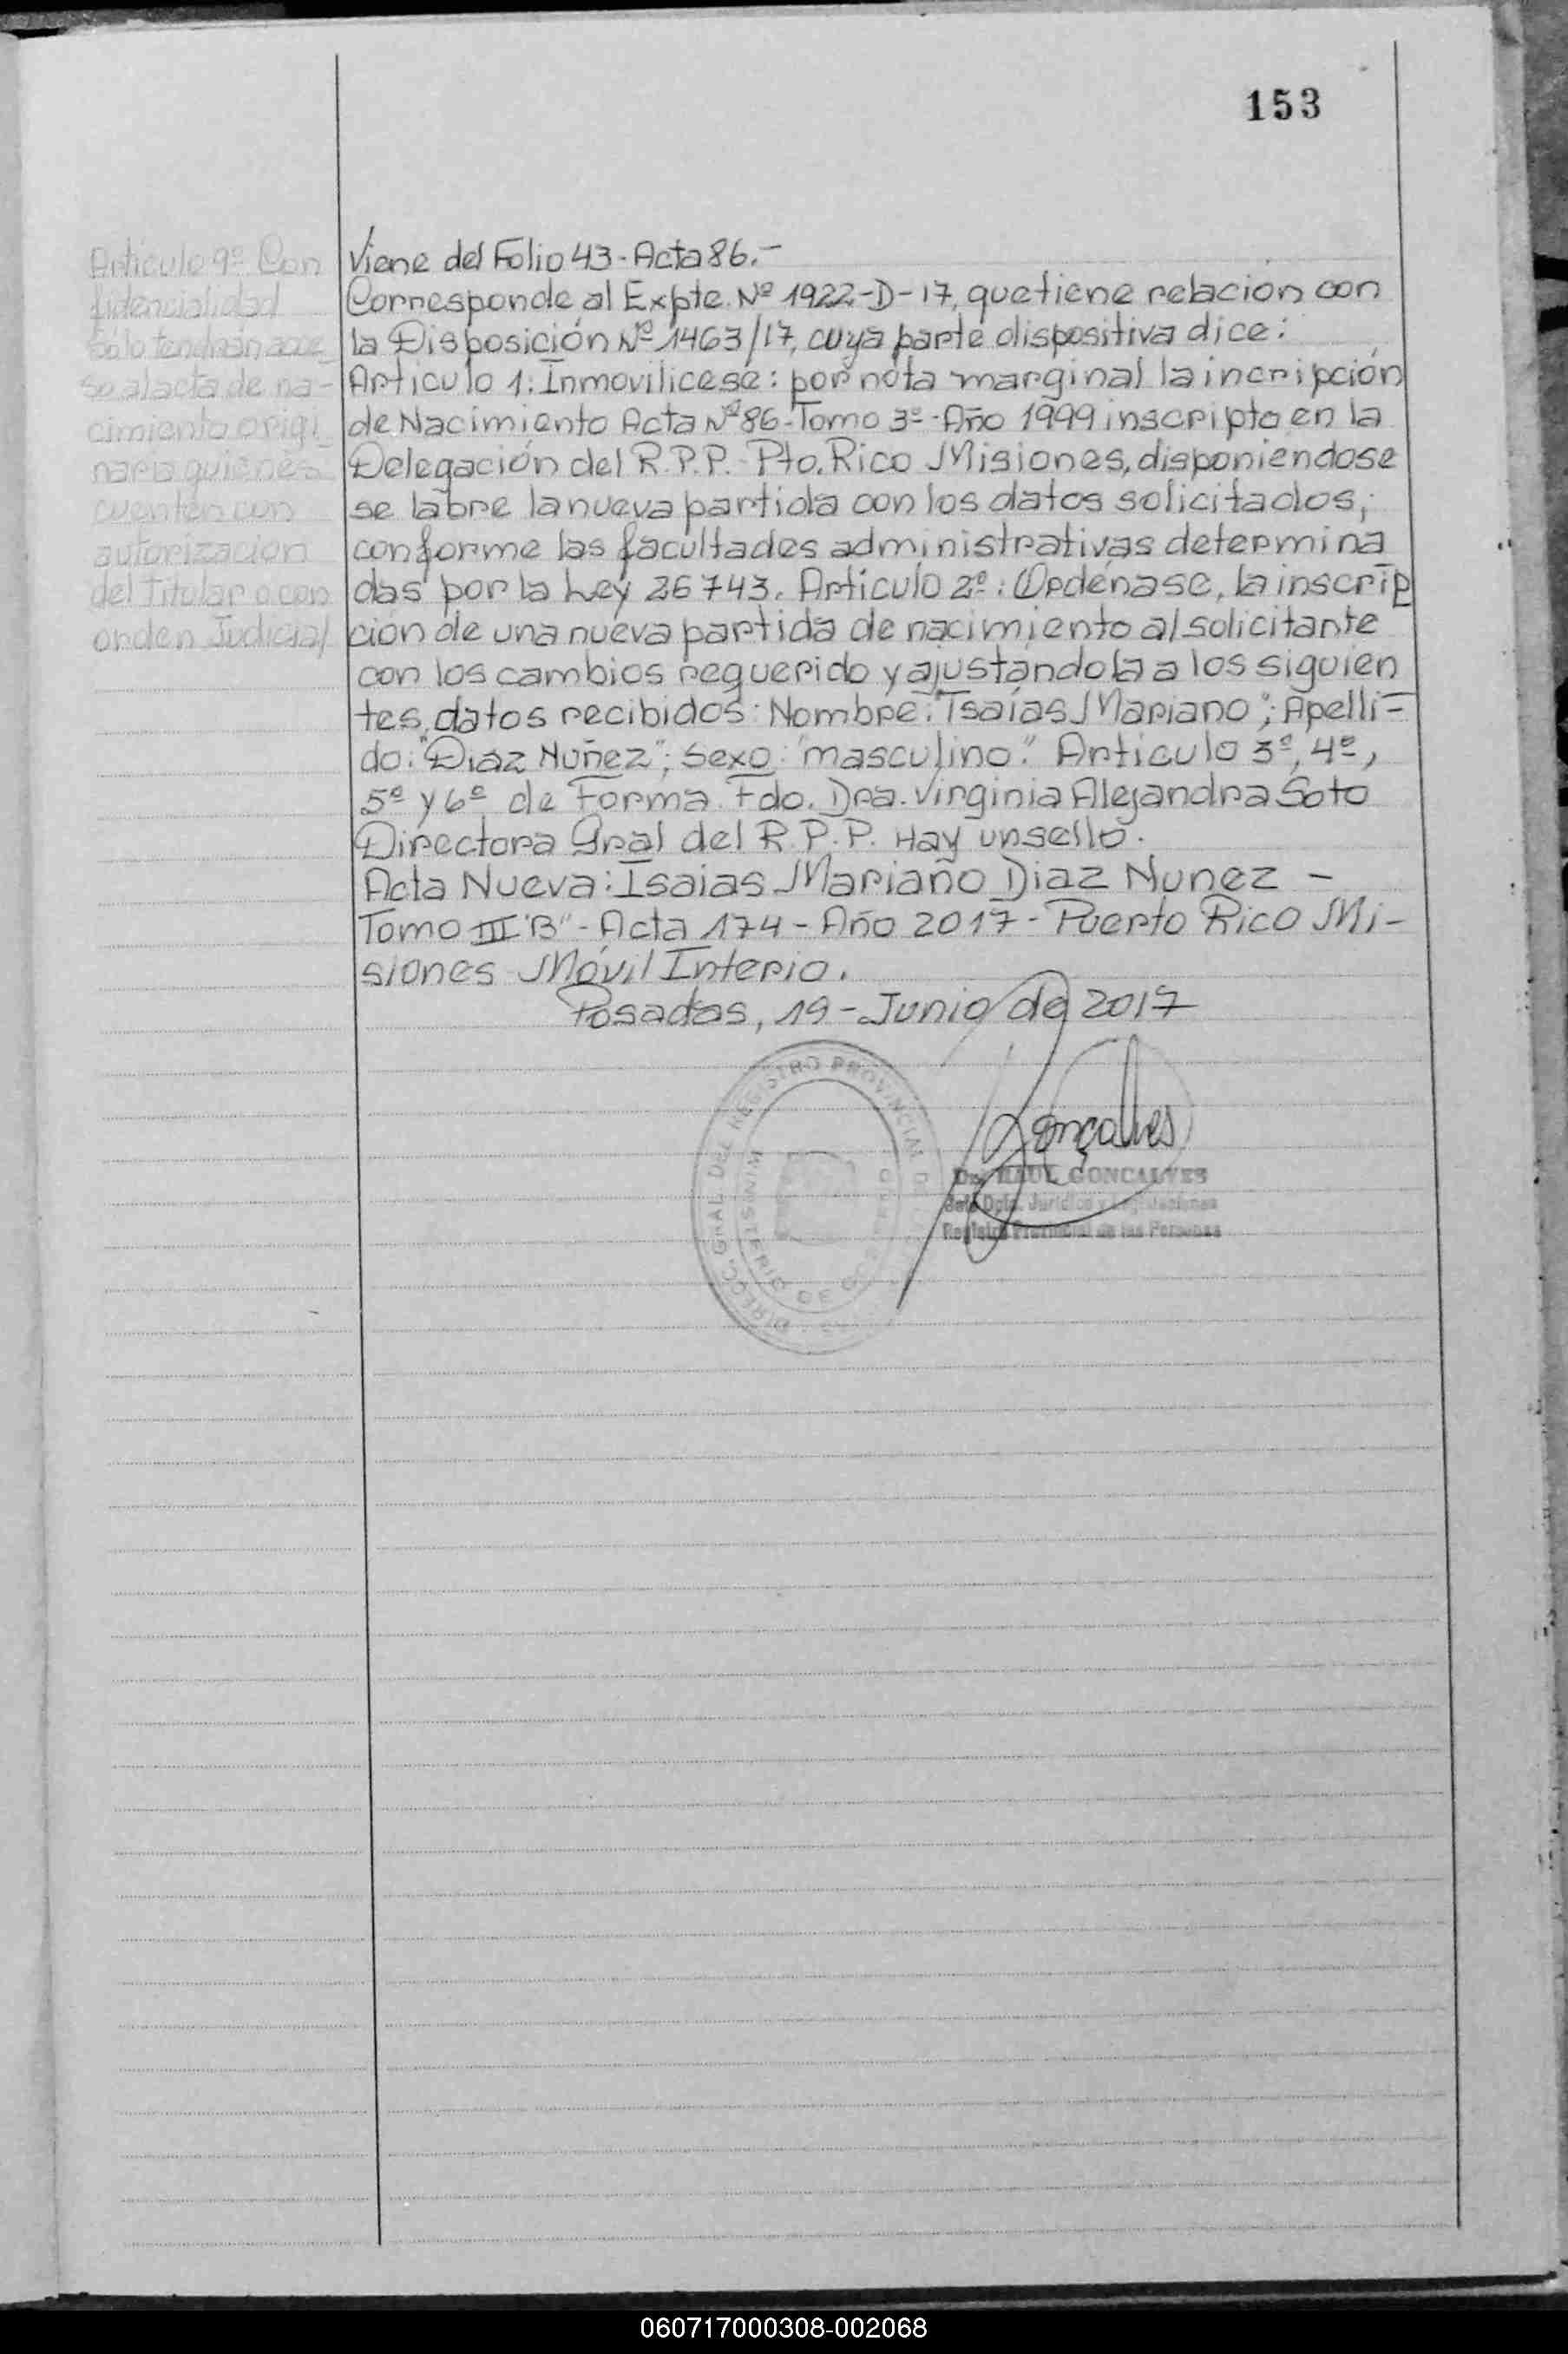 153
Articulo 9º Con
fidencialidad
Solo tendran acce
so al acta de na-
cimiento origi
naria quienes
cuenten con
autorizacion
del Titular o con
orden Judicial
Viene del Folio 43 - Acta 86.-
Corresponde al Expte. Nº 1922-D-17, que tiene relacion con
la Disposición Nº 1463/17, cuya parte dispositiva dice:
Articulo 1: Inmovilicese: por nota marginal la incripción
de Nacimiento Acta Nº 86-Tomo 3º-Año 1999 inscripto en la
Delegación del R.P.P. Pto. Rico Misiones, disponiendose
se labre la nueva partida con los datos solicitados,
conforme las facultades administrativas determina
das por la Ley 26743. Articulo 2º: Ordénase, la inscrip
cion de una nueva partida de nacimiento al solicitante
con los cambios requerido y ajustándola a los siguien
tes datos recibidos: Nombre: "Isaías Mariano"; Apelli-
do: "Diaz Nuñez"; Sexo: "masculino". Articulo 3º, 4º,
5º y 6º de Forma. Fdo. Dra. Virginia Alejandra Soto
Directora Gral del R.P.P. Hay un sello.
Acta Nueva: Isaias Mariano Diaz Nunez -
Tomo III "B" - Acta 174 - Año 2017 - Puerto Rico Mi-
siones Móvil Interio.
Posadas, 19 - Junio de 2017
DIRECC. GRAL DEL REGISTRO PROVINCIAL D
MINISTERIO DE GO
Gonçalves
Dr. RAUL GONCALVES
Jefe Dpto. Jurídico y
Registro Provincial de las Personas
060717000308-002068